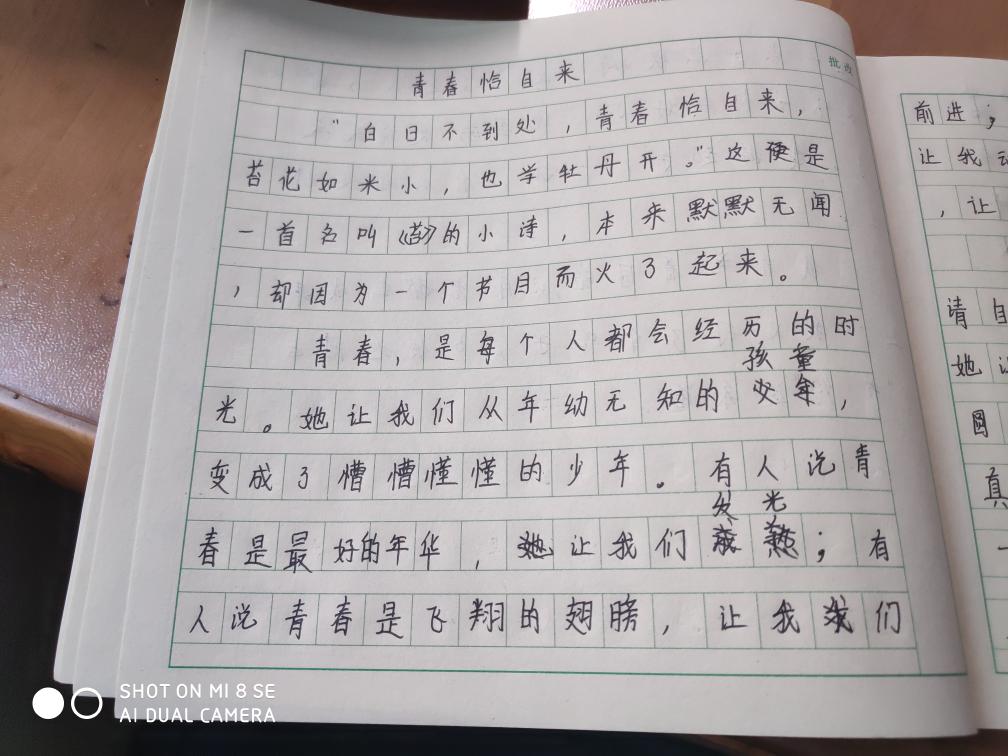 青春恰自来
“白日不到处，青春恰自来，
苔花如米小，也学牡丹开。”这便是
一首名叫《苔》的小诗，本来默默无闻
，却因为一个节目而火了起来。
青春，是每个人都会经历的时
孩童
光。她让我们从年幼无知的少年，
变成了懵懵懂懂的少年。有人说青
发光
春是最好的年华，她让我们成熟；有
人说青春是飞翔的翅膀，让我我们
批改
前进；
让我
，让
请自
她让
真
一
SHOT ON MI 8 SE
AI DUAL CAMERA